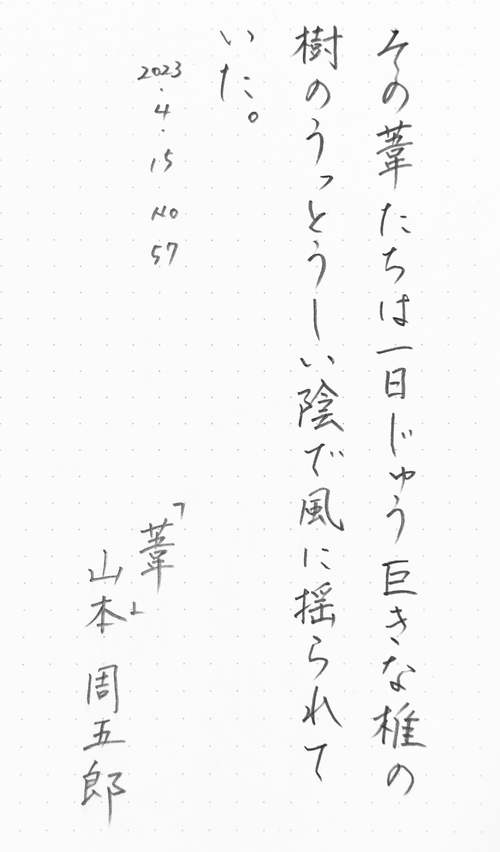 その葦たちは一日じゅう巨きな椎の
樹のうっとうしい陰で風に揺られて
いた。
2023.4.15 No 57
「葦」
山本周五郎